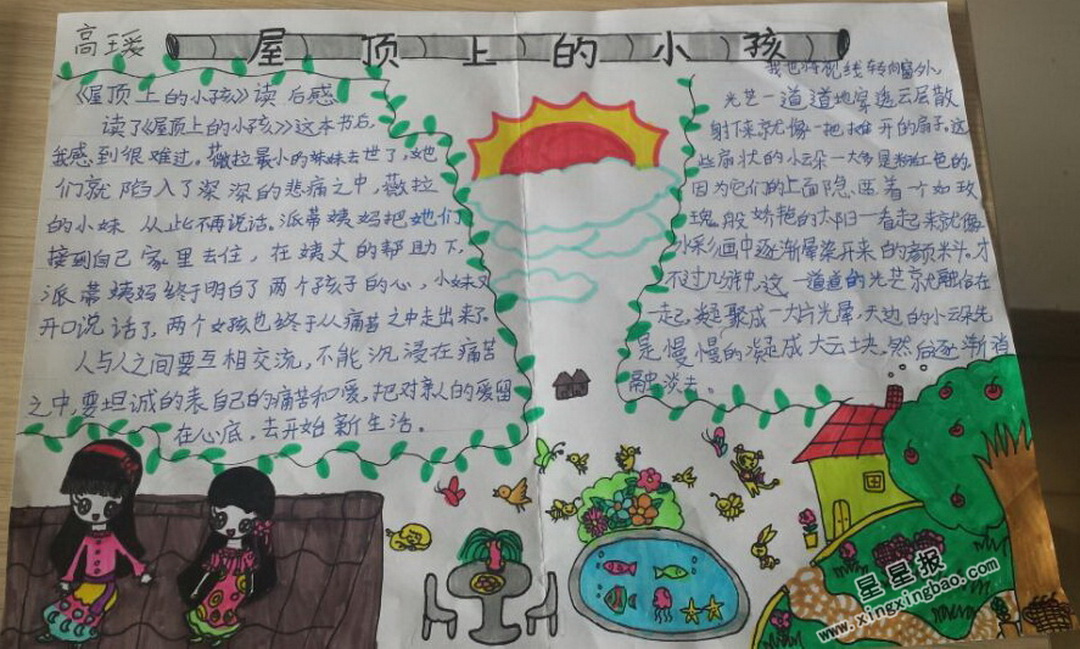 高瑗
屋顶上的小孩
《屋顶上的小孩》读后感
读了《屋顶上的小孩》这本书后,
我感到很难过。薇拉最小的妹妹去世了,她
们就陷入了深深的悲痛之中,薇拉
的小妹从此不再说话。派蒂姨妈把她们
接到自己家里去住,在姨丈的帮助下,
派蒂姨妈终于明白了两个孩子的心,小妹又
开口说话了,两个女孩也终于从痛苦之中走出来了。
人与人之间要互相交流,不能沉浸在痛苦
之中,要坦诚的表自己的痛苦和爱,把对亲人的爱留
在心底,去开始新生活。
我也将视线转向窗外。
光芒一道道地穿透云层散
射下来就像一把摊开的扇子。这
些扇状的小云朵一大多是粉红色的。
因为它们的上面隐匿着一个如玫
瑰般娇艳的太阳一看起来就像
水彩画中逐渐晕染开来的颜料。才
不过几分钟,这一道道的光芒就融合在
一起,凝聚成一大片光晕,天边的小云朵先
是慢慢的凝成大云块,然后逐渐消
融淡去。
星星报
www.xingxingbao.com